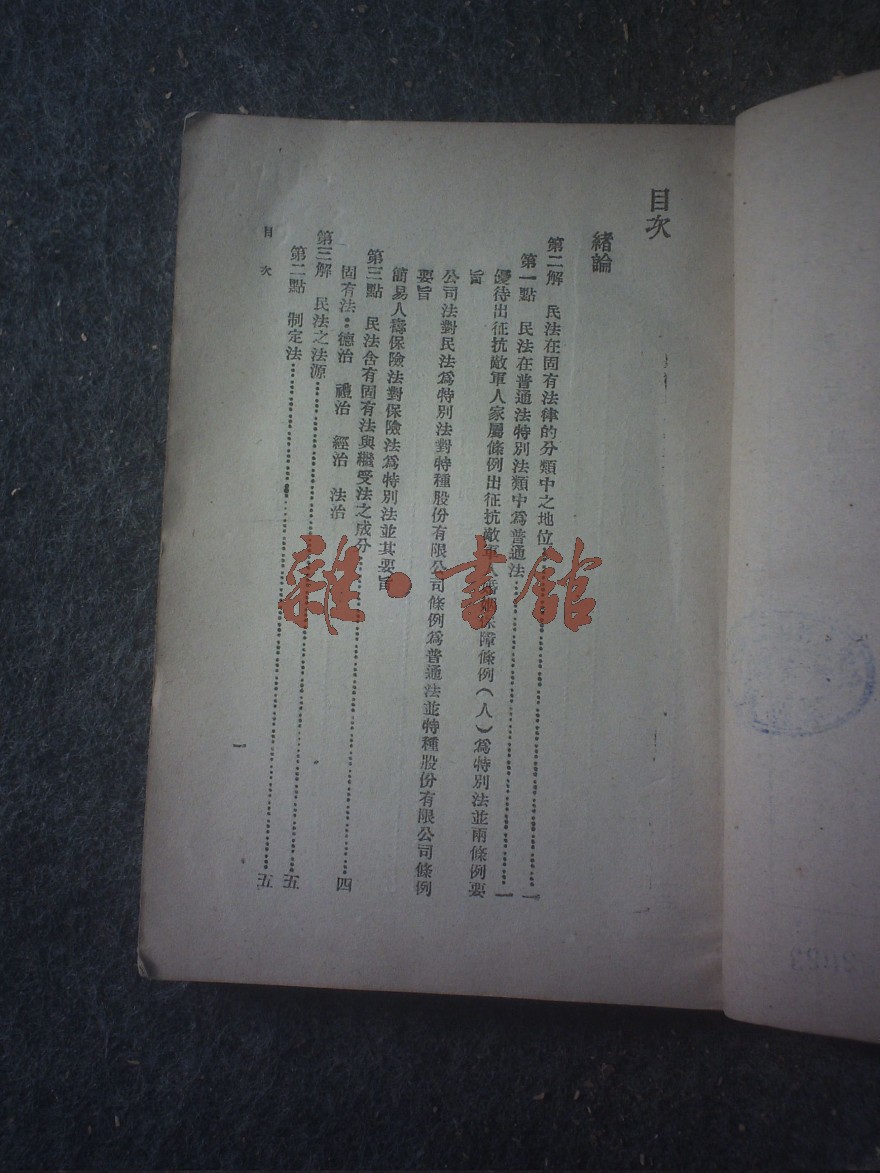 目次
緒論
第二解　民法在固有法律的分類中之地位……一
第一點　民法在普通法特別法類中為普通法……一
優待出征抗敵軍人家屬條例出征抗敵軍人婚姻保障條例（人）為特別法並兩條例要
旨
公司法對民法為特別法對特種股份有限公司條例為普通法並特種股份有限公司條例
要旨
簡易人壽保險法對保險法為特別法並其要旨
第三點　民法含有固有法與繼受法之成分……四
固有法：德治　禮治　經治　法治
第三解　民法之法源……五
第二點　制定法……五
目次
一
雜·書館
2023